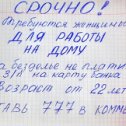 СРОЧНО!
Требуются женщины
ДЛЯ РАБОТЫ
НА ДОМУ
за безделье не плати
З/П на карту банка
Возраст от 22 лет
ТАВЬ 777 В КОММ